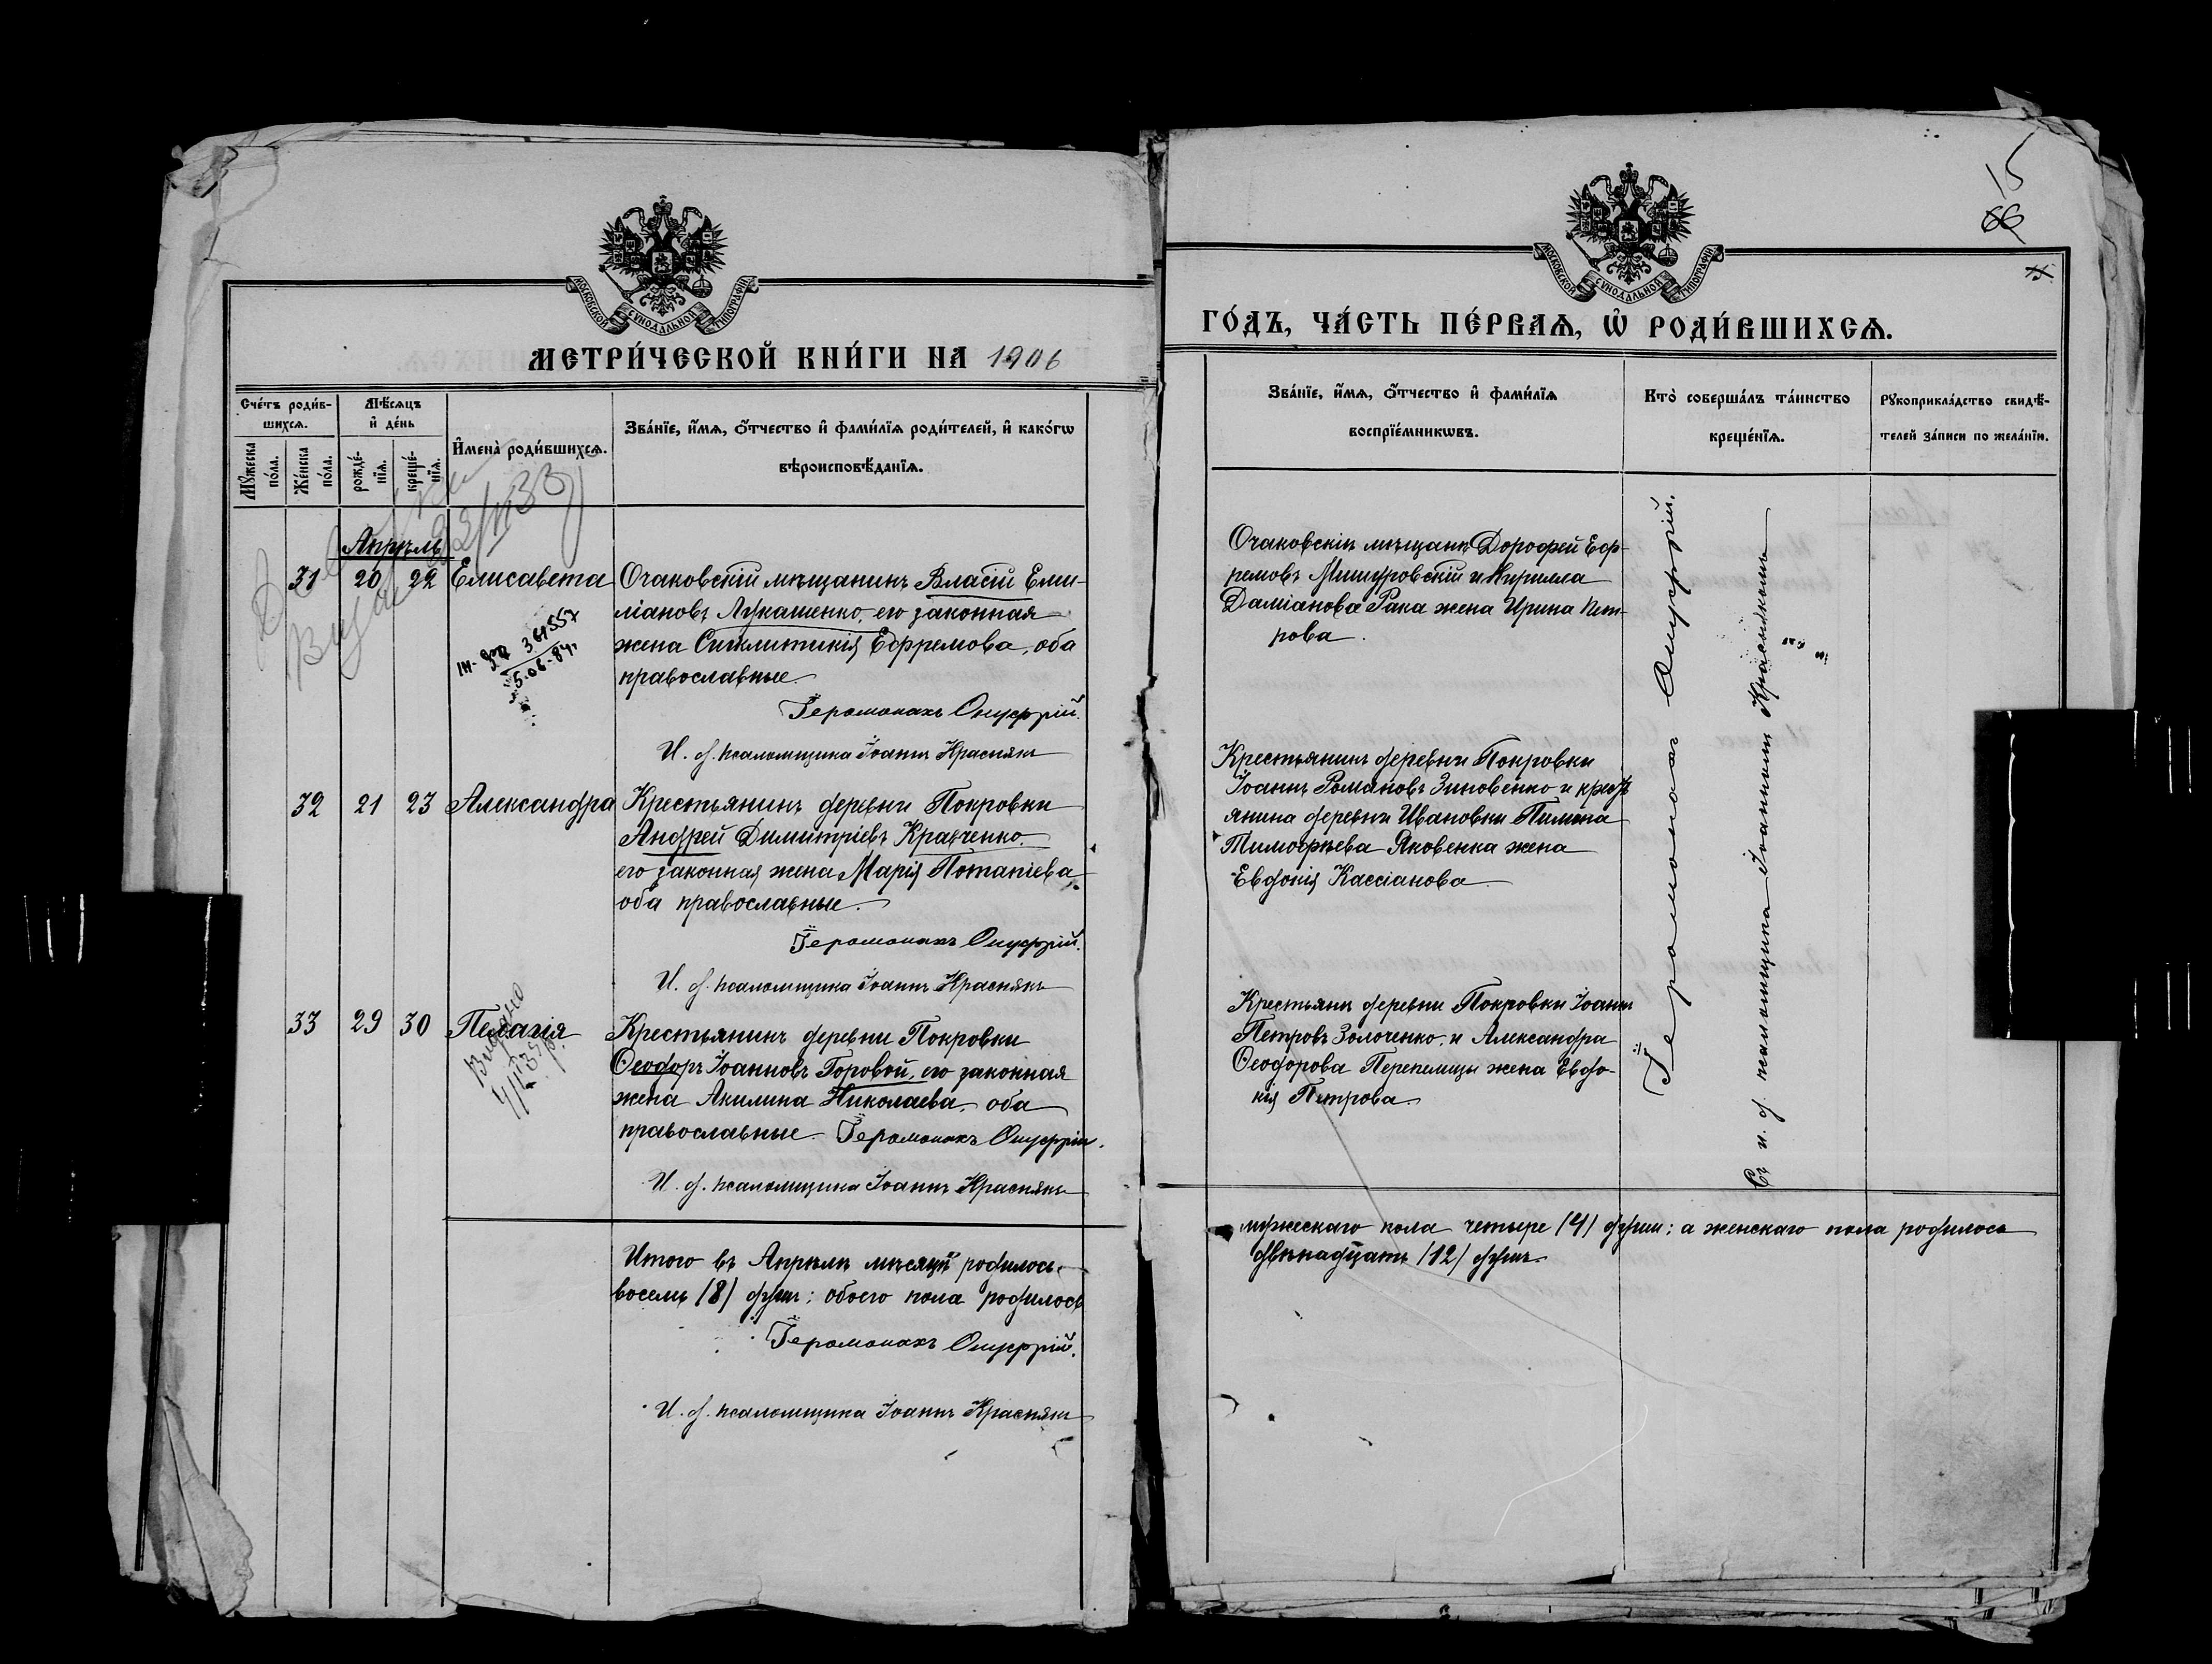 МОСКОВСКОЙ СѴНОДАЛЬНОЙ ТИПОГРАФІИ
МЕТРИ́ЧЕСКОЙ КНИ́ГИ НА 1906
Сче́тъ роди́в-
шихсѧ.
Мѣ́сѧцъ
и҆ де́нь
Мꙋ́жеска по́ла.
Же́нска по́ла.
рожде́-
нїѧ.
креще́-
нїѧ.
И҆мена̀ роди́вшихсѧ.
Зва́нїе, и҆́мѧ, ѻ҆́тчество и҆ фами́лїѧ роди́телей, и҆ како́гѡ
вѣроисповѣ́данїѧ.
Апрѣль
31 20 22 Елисавета
Очаковскій мѣщанинъ Власій Еми-
ліановъ Лукашенко, его законная
жена Синклитикія Ефремова, оба
православные.
Іеромонахъ Онуфрій.
И. д. псаломщика Іоаннъ Краснякъ
361557
5.06-84г.
32 21 23 Александра
Крестьянинъ деревни Покровки
Андрей Димитріевъ Кравченко,
его законная жена Марія Потапіева
оба православные.
Іеромонахъ Онуфрій.
И. д. псаломщика Іоаннъ Краснякъ
33 29 30 Пелагія
Видано
Крестьянинъ деревни Покровки
Ѳеодоръ Іоанновъ Горовой, его законная
жена Акилина Николаева, оба
православные. Іеромонахъ Онуфрій.
И. д. псаломщика Іоаннъ Краснякъ
Итого въ Апрѣлѣ мѣсяцѣ родилось
восемь /8/ душъ; обоего пола родилось
Іеромонахъ Онуфрій.
И. д. псаломщика Іоаннъ Краснякъ
15
66
МОСКОВСКОЙ СѴНОДАЛЬНОЙ ТИПОГРАФІИ
ГО́ДЪ, ЧА́СТЬ ПЕ́РВАѦ, Ѡ҆ РОДИ́ВШИХСѦ.
Зва́нїе, и҆́мѧ, ѻ҆́тчество и҆ фами́лїѧ
воспрїе́мникѡвъ.
Кто̀ соверша́лъ та́инство
креще́нїѧ.
Рꙋкоприкла́дство свидѣ́-
телей за́писи по жела́нїю.
Очаковскій мѣщанинъ Дорофей Еф-
ремовъ Мишуровскій и Кирилла
Даміанова Рака жена Ирина Пет-
рова.
Крестьянинъ деревни Покровки
Іоаннъ Романовъ Зиновенко и кресть
янина деревни Ивановки Пимена
Тимофѣева Яковенка жена
Евдокія Кассіанова.
Крестьянинъ деревни Покровки Іоаннъ
Петровъ Золоченко, и Александра
Ѳеодорова Перепелицы жена Евдо-
кія Петрова.
Іеромонахъ Онуфрій.
Съ и. д. псаломщика Іоанномъ Краснякомъ
мужескаго пола четыре /4/ души; а женскаго пола родилось
двѣнадцать /12/ душъ.